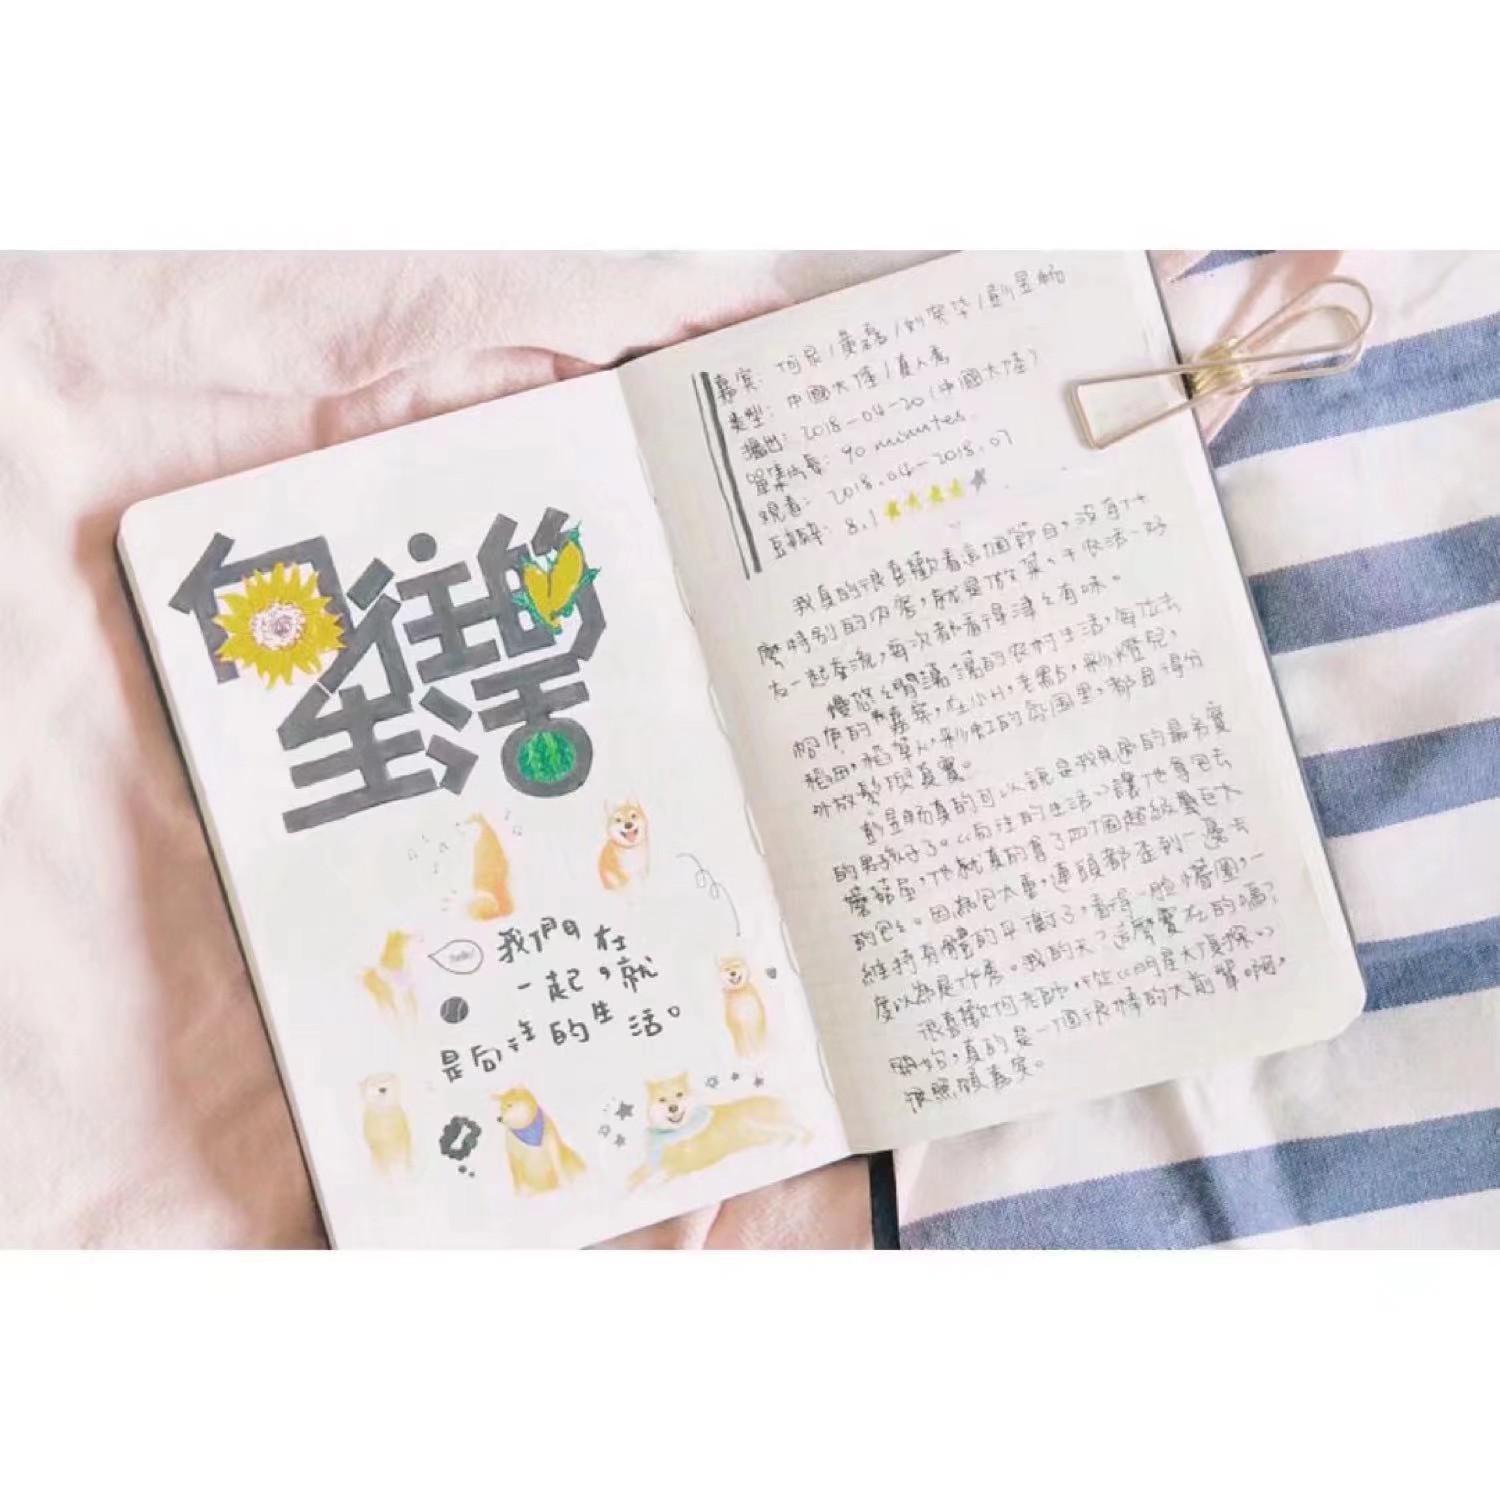 向往的
生活
hello!
我們在
一起，就
是向往的生活。
嘉宾：何炅/黃磊/刘宪华/彭昱畅
类型：中國大陸/真人秀
播出：2018-04-20(中國大陸)
單集片長：90 minutes.
觀看：2018.04-2018.07
豆瓣評：8.1
我真的很喜歡看這個節目，沒有什
麼特别的内容，就是做菜、干农活、好
友一起交流，每次都看得津々有味。
慢悠々閒讓讓的农村生活，每位去
相庚的嘉宾，在小H，老點，彩燈兒，
稻田，稻草人，彩虹的氛围里，都显得分
外放鬆與真實。
彭昱畅真的可以說是我見過的最老實
的男孩子了。《向往的生活》讓他拿包去
蘑菇屋，他就真的拿了四個超級無巨大
的包々。因為包太重，連頭都歪到一邊去
維持身體的平衡了，看得一脸懵圈，一
度以為是作秀。我的天？這麼實在的嗎？
很喜歡何老師，從《明星大偵探》
開始，真的是一個很棒的大前輩啊，
很照顧嘉宾。